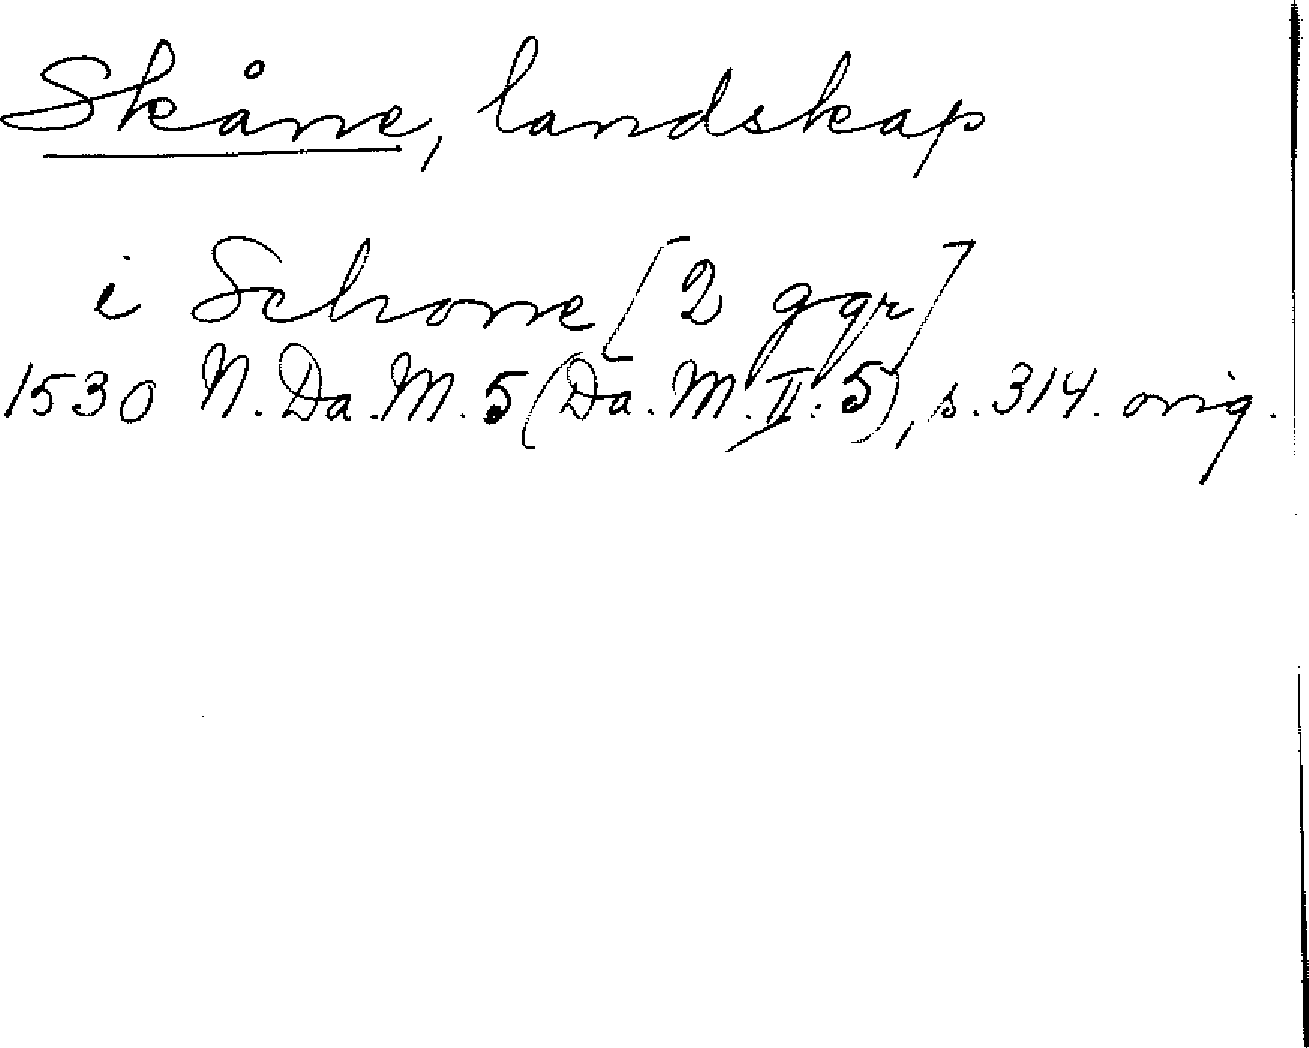 Skåne, landskap
i Schone [2 ggr]
1530 N. Da. M. 5 (Da. M. II. 5), s. 314. orig.